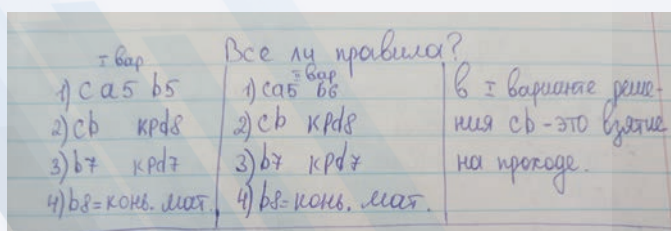 Все ли правила?
I вар
1) са5 b5
2) cb крd8
3) b7 крd7
4) b8= конь. мат.
I вар
1) са5 b6
2) cb крd8
3) b7 крd7
4) b8= конь. мат.
в I варианте реше-
ния cb - это взятие
на проходе.